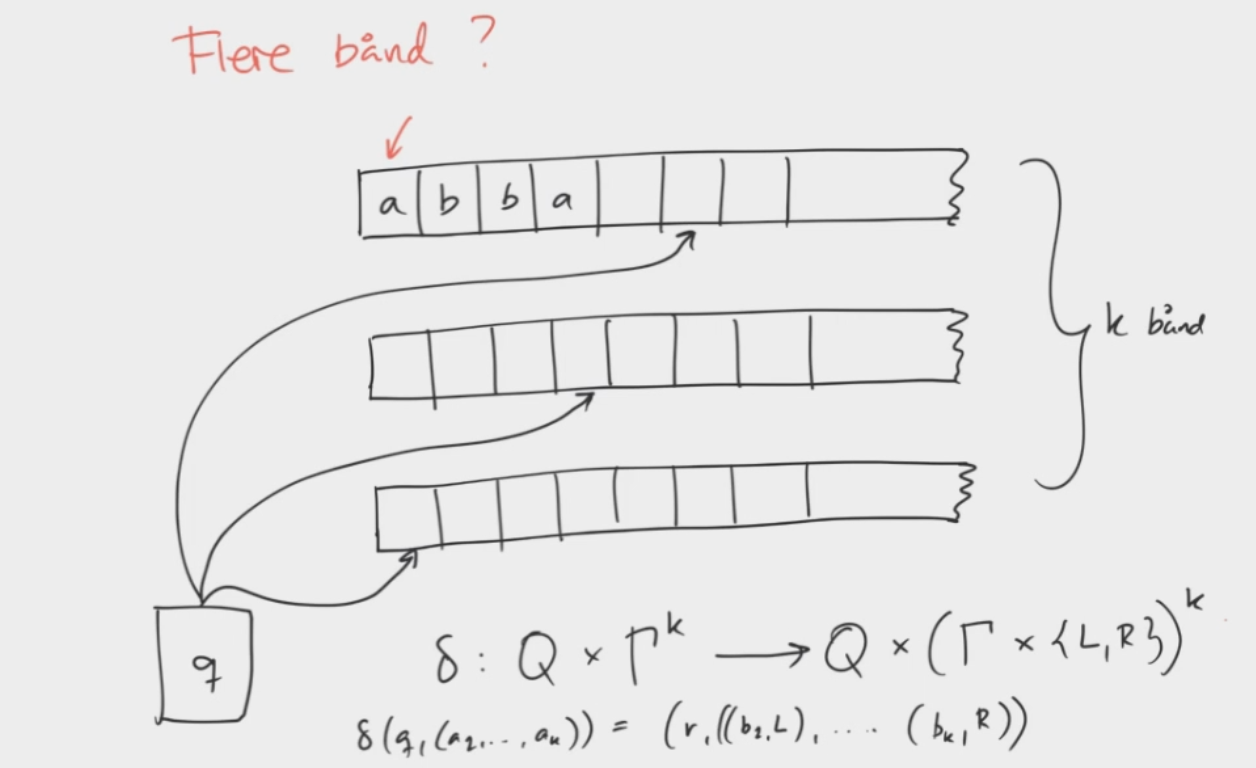 Flere bånd ?
a b b a
k bånd
q
δ : Q × Γ^k ⟶ Q × (Γ × {L, R})^k
δ(q, (a₁, ..., aₖ)) = (r, ((b₁, L), .... (bₖ, R))